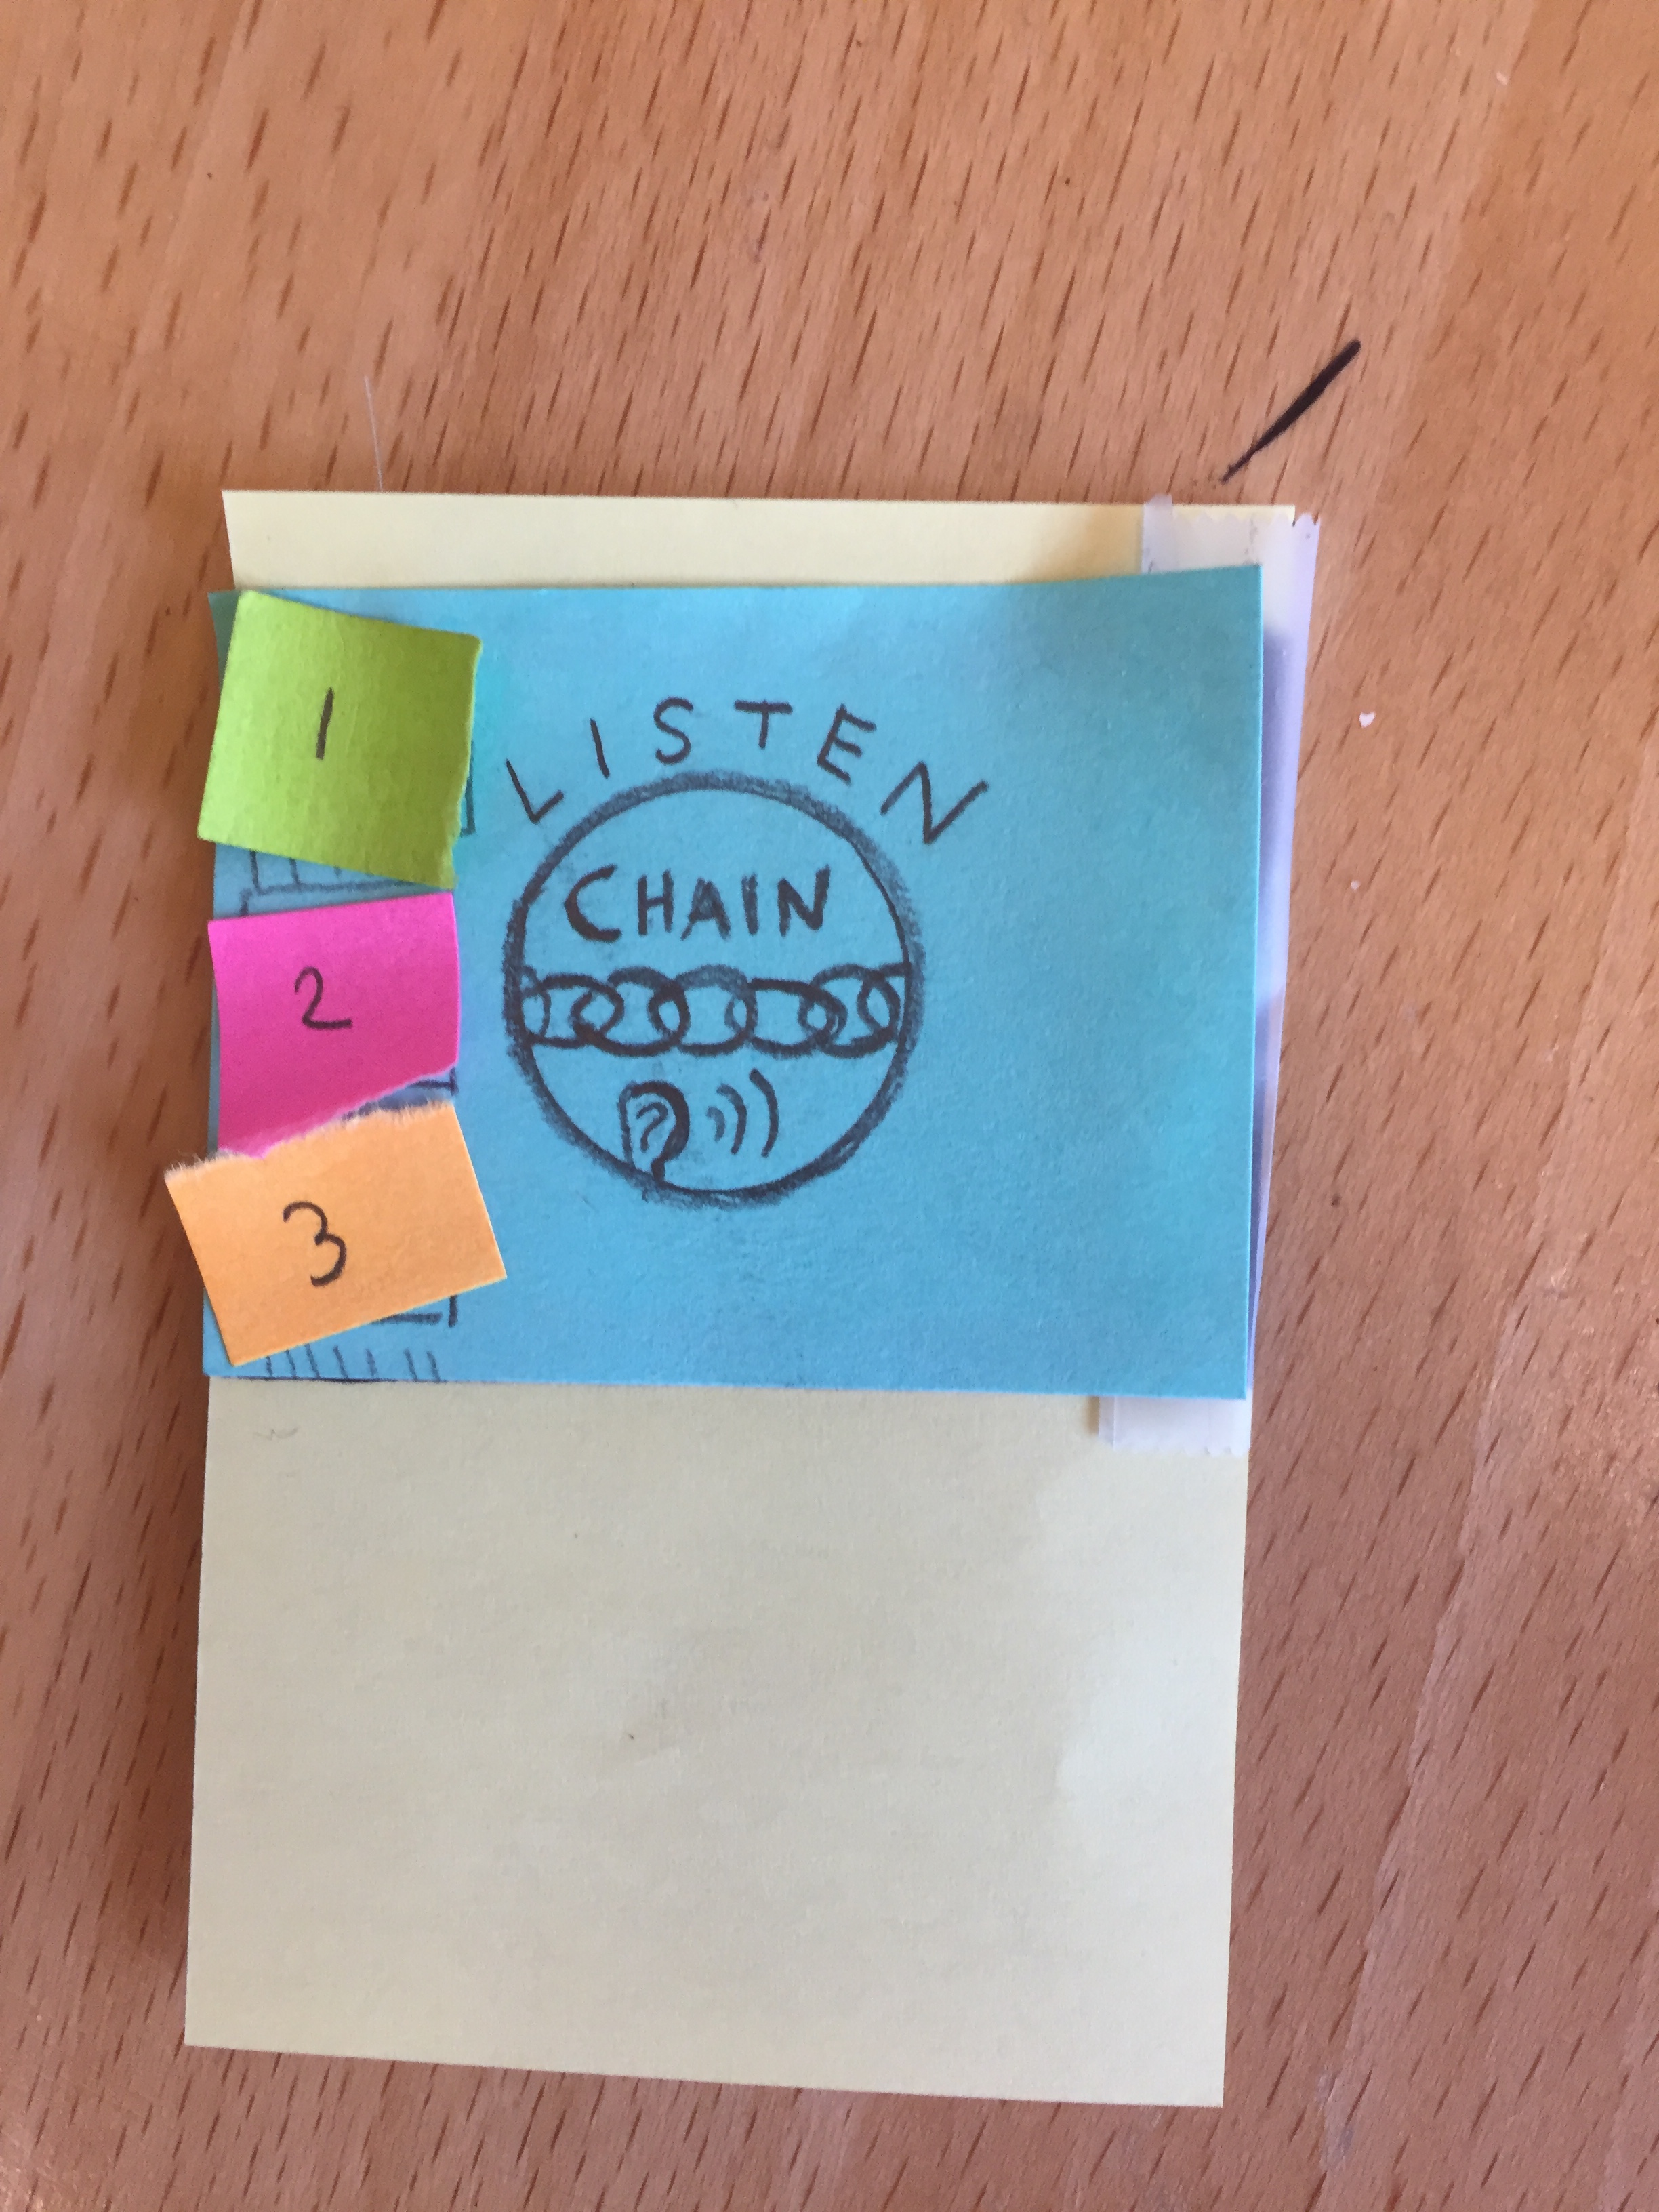 1
2
3
LISTEN
CHAIN